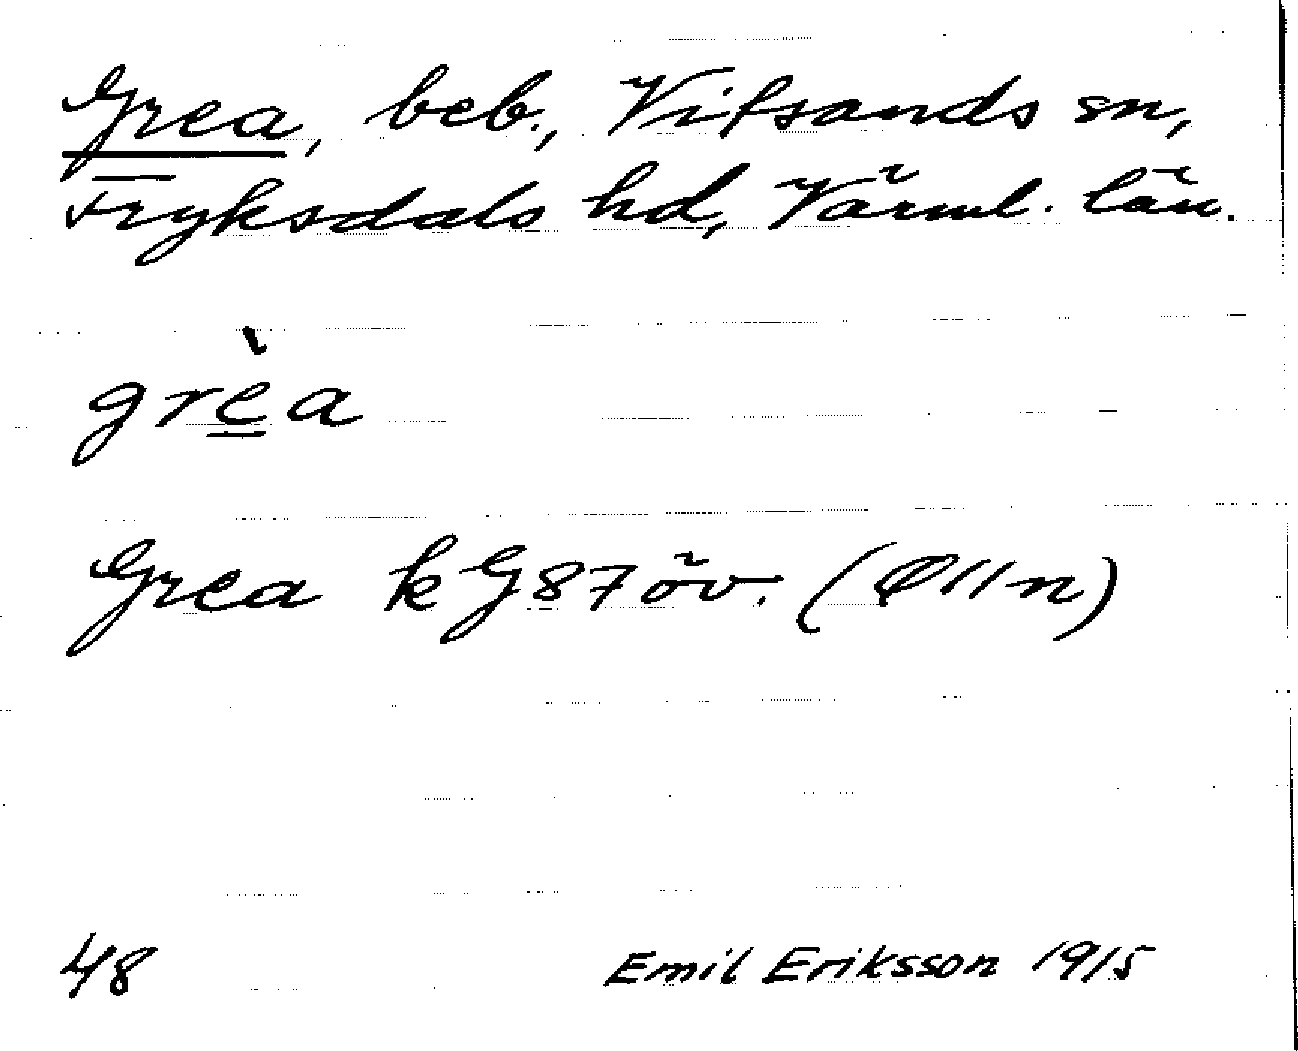 Grea, beb., Vitsands sn,
Fryksdals hd, Värml. län.
grèa
Grea k G 87 öv.
48 Emil Eriksson 1915